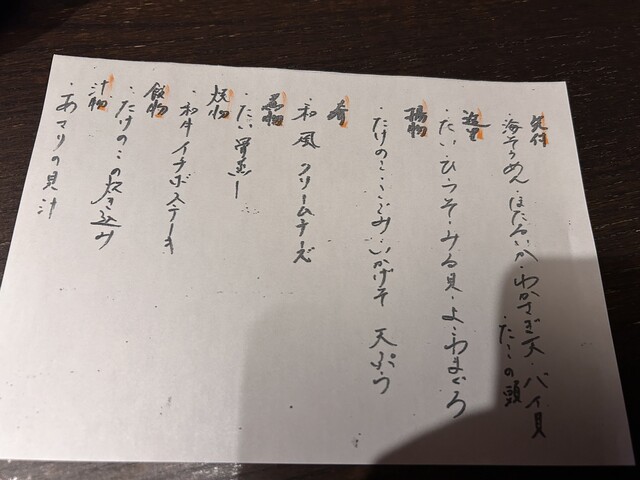 先付
・海そうめん・ほたるいか・わかさぎ天・バイ貝
・たこの頭
造里
・たい・ひらそ・みる貝・よこわまぐろ
揚物
・たけのこ・こごみ・いかげそ 天ぷら
肴
・和風クリームチーズ
蒸物
・たい骨蒸し
焼物
・和牛イチボステーキ
飯物
・たけのこの炊き込み
汁物
・あさりの貝汁